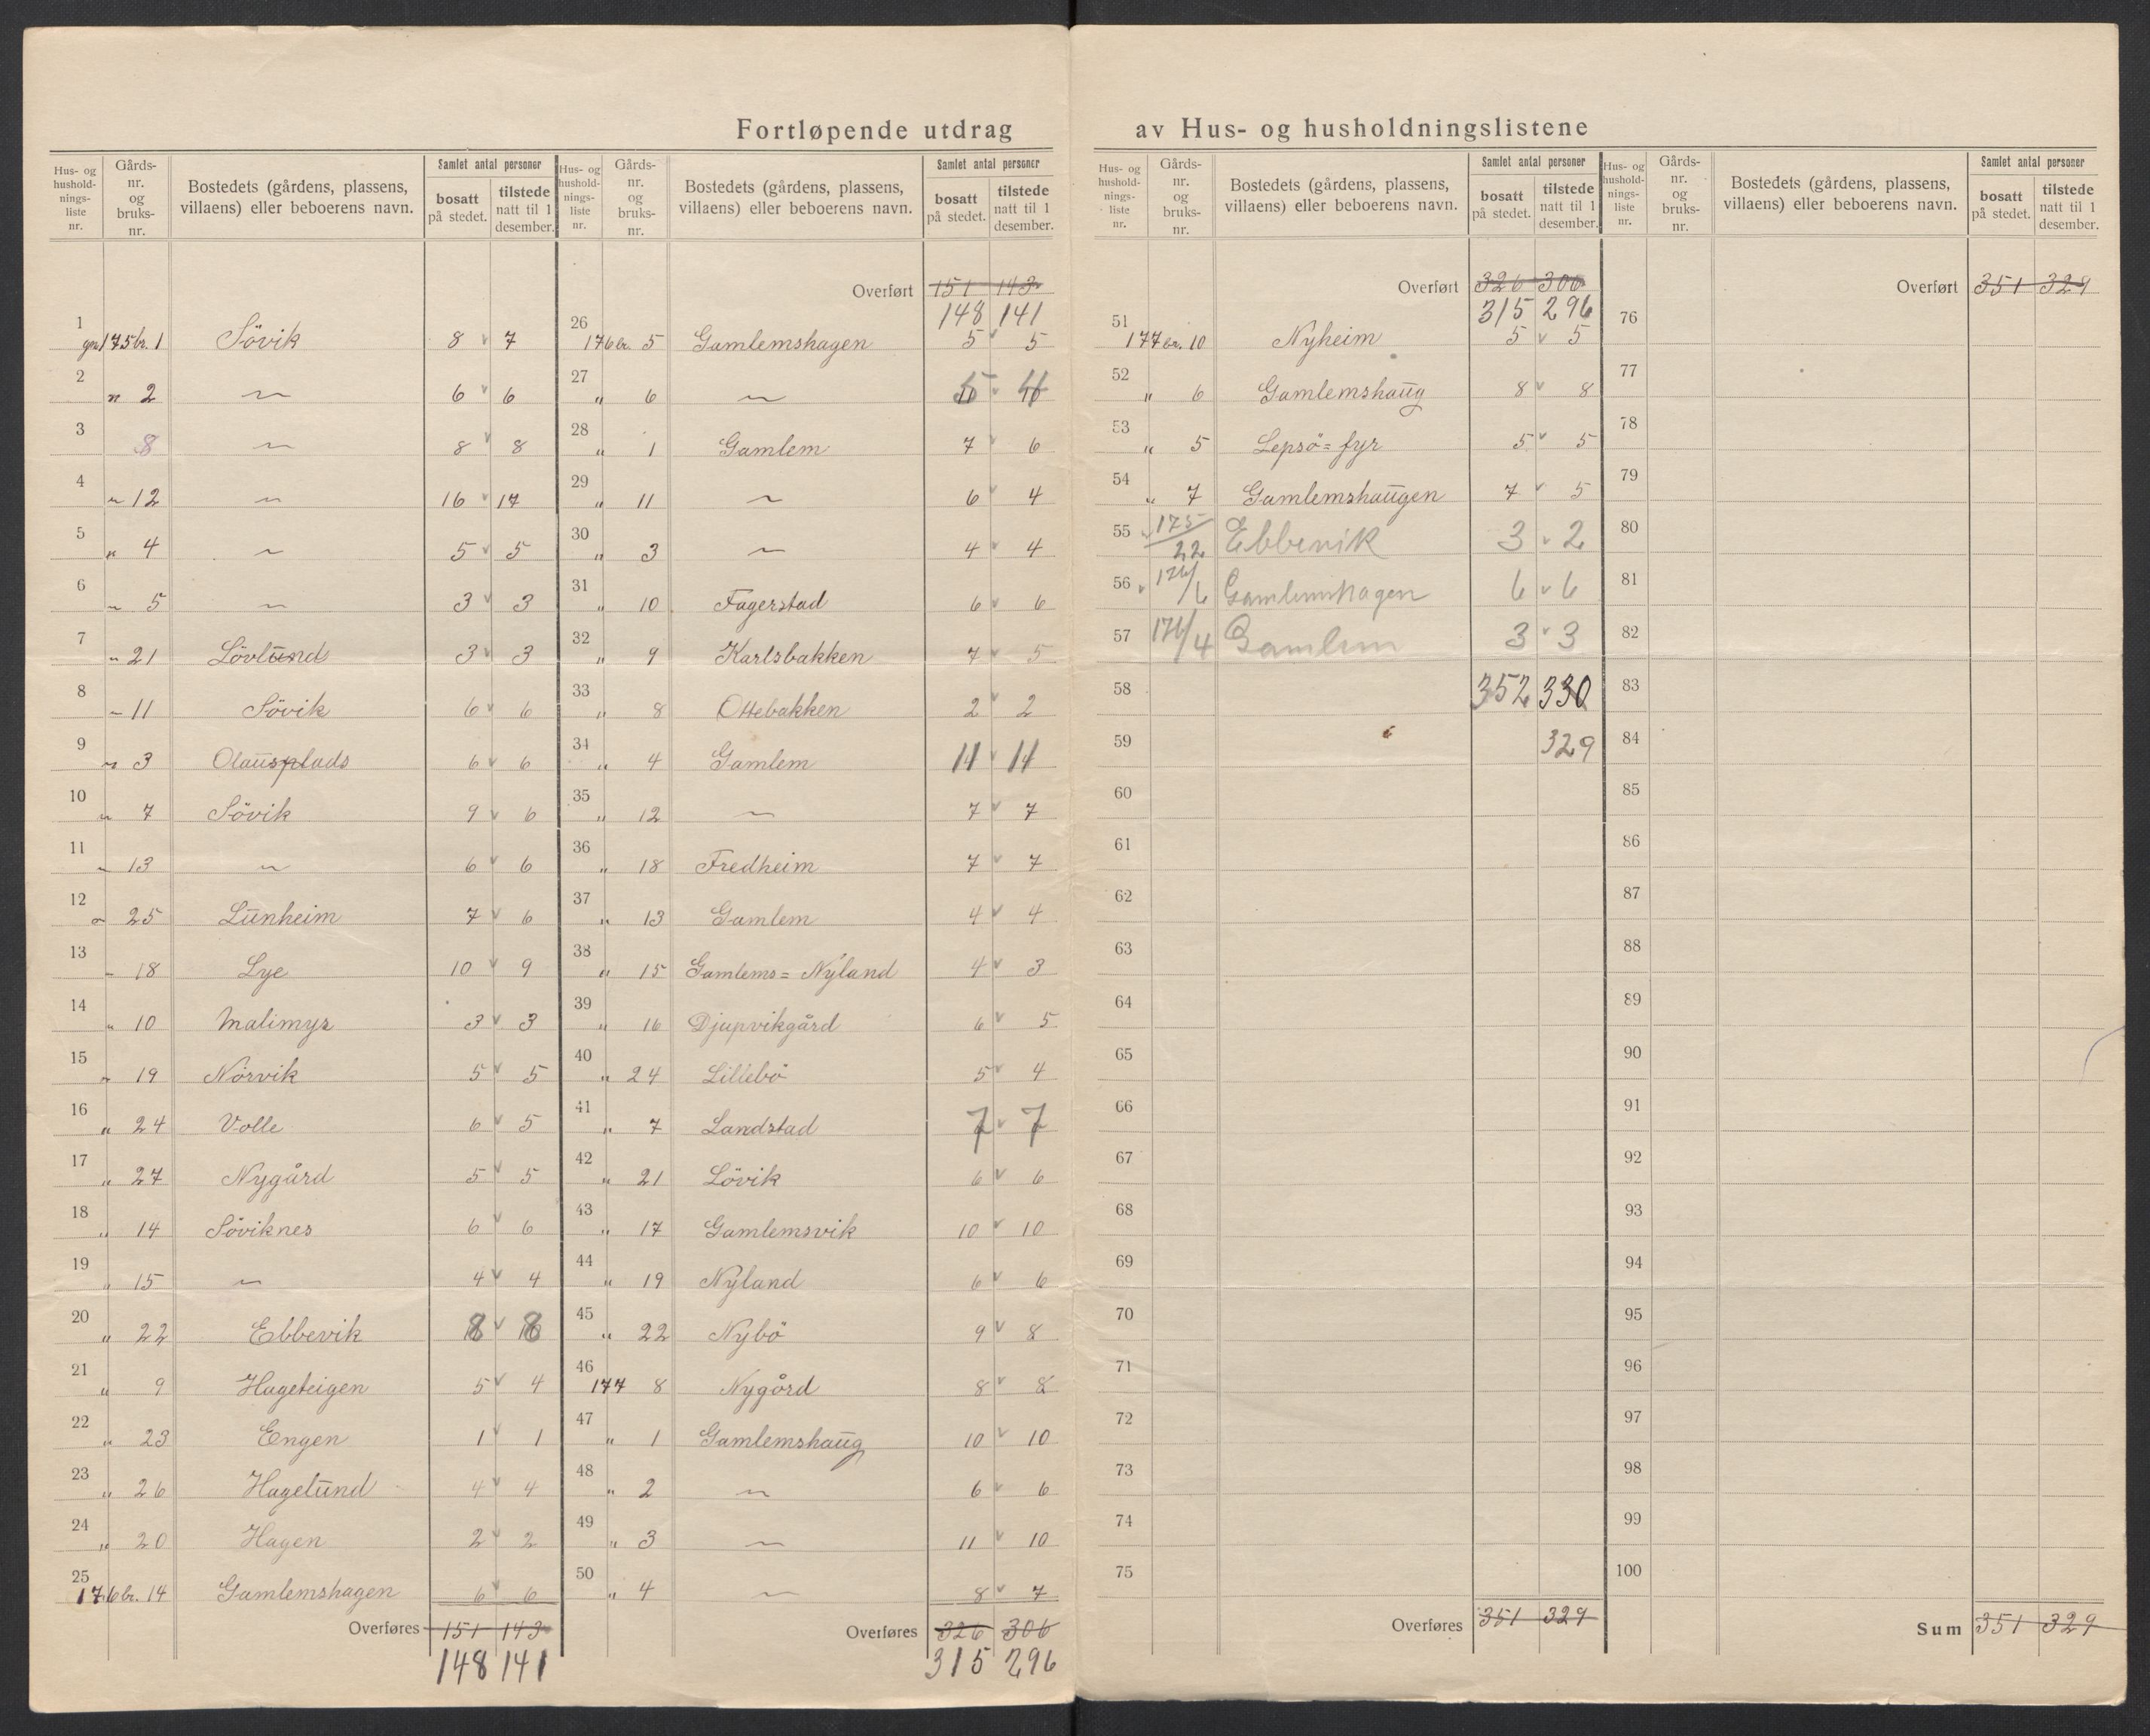 Fortløpende utdrag av Hus- og husholdningslistene
Hus- og hushold-nings-liste nr. Gårds-nr. og bruks-nr. Bostedets (gårdens, plassens, villaens) eller beboerens navn. Samlet antal personer bosatt på stedet. tilstede natt til 1 desember.
1 gnr 175 br. 1 Søvik 8 v 7
2 " 2 — 6 v 6
3 8 — 8 v 8
4 " 12 — 16 v 17
5 " 4 — 5 v 5
6 " 5 — 3 v 3
7 " 21 Lövlund 3 v 3
8 " 11 Sövik 6 v 6
9 " 3 Olausplads 6 v 6
10 " 7 Sövik 9 v 6
11 " 13 — 6 v 6
12 " 25 Lünheim 7 v 6
13 " 18 Lye 10 v 9
14 " 10 Malimyr 3 v 3
15 " 19 Nörvik 5 v 5
16 " 24 Volle 6 v 5
17 " 27 Nygård 5 v 5
18 " 14 Söviknes 6 v 6
19 " 15 — 4 v 4
20 " 22 Ebbevik 8 v 8
21 " 9 Hageteigen 5 v 4
22 " 23 Engen 1 v 1
23 " 26 Hagelünd 4 v 4
24 " 20 Hagen 2 v 2
25 176 br. 14 Gamlemshagen 6 v 6
Overføres 151 143
148 141
Hus- og hushold-nings-liste nr. Gårds-nr. og bruks-nr. Bostedets (gårdens, plassens, villaens) eller beboerens navn. Samlet antal personer bosatt på stedet. tilstede natt til 1 desember.
Overført 151 143
148 141
26 176 br. 5 Gamlemshagen 5 v 5
27 " 6 —
28 " 1 Gamlem 7 v 6
29 " 11 — 6 v 4
30 " 3 — 4 v 4
31 " 10 Fagerstad 6 v 6
32 " 9 Karlsbakken 7 v 5
33 " 8 Ottebakken 2 v 2
34 " 4 Gamlem 11 v 11
35 " 12 — 7 v 7
36 " 18 Fredheim 7 v 7
37 " 13 Gamlem 4 v 4
38 " 15 Gamlems= Nyland 4 v 3
39 " 16 Djupvikgård 6 v 5
40 " 24 Lillebö 5 v 4
41 " 7 Landstad 7 v 7
42 " 21 Lövik 6 v 6
43 " 17 Gamlemsvik 10 v 10
44 " 19 Nyland 6 v 6
45 " 22 Nybö 9 v 8
46 177 8 Nygård 8 v 8
47 " 1 Gamlemshaüg 10 v 10
48 " 2 — 6 v 6
49 " 3 — 11 v 10
50 " 4 — 8 v 7
Overføres 326 306
315 296
Hus- og hushold-nings-liste nr. Gårds-nr. og bruks-nr. Bostedets (gårdens, plassens, villaens) eller beboerens navn. Samlet antal personer bosatt på stedet. tilstede natt til 1 desember.
Overført 326 306
315 296
51 177 br. 10 Nyheim 5 v 5
52 " 6 Gamlemshaüg 8 v 8
53 " 5 Lepsö= fyr 5 v 5
54 " 7 Gamlemshaügen 7 v 5
55 175/22 Ebbevik 3 v 2
56 176/6 Gamlemshagen 6 v 6
57 176/4 Gamlem 3 v 3
58 352 330
59 329
60
61
62
63
64
65
66
67
68
69
70
71
72
73
74
75
Overføres 351 329
Hus- og hushold-nings-liste nr. Gårds-nr. og bruks-nr. Bostedets (gårdens, plassens, villaens) eller beboerens navn. Samlet antal personer bosatt på stedet. tilstede natt til 1 desember.
Overført 351 329
76
77
78
79
80
81
82
83
84
85
86
87
88
89
90
91
92
93
94
95
96
97
98
99
100
Sum 351 329